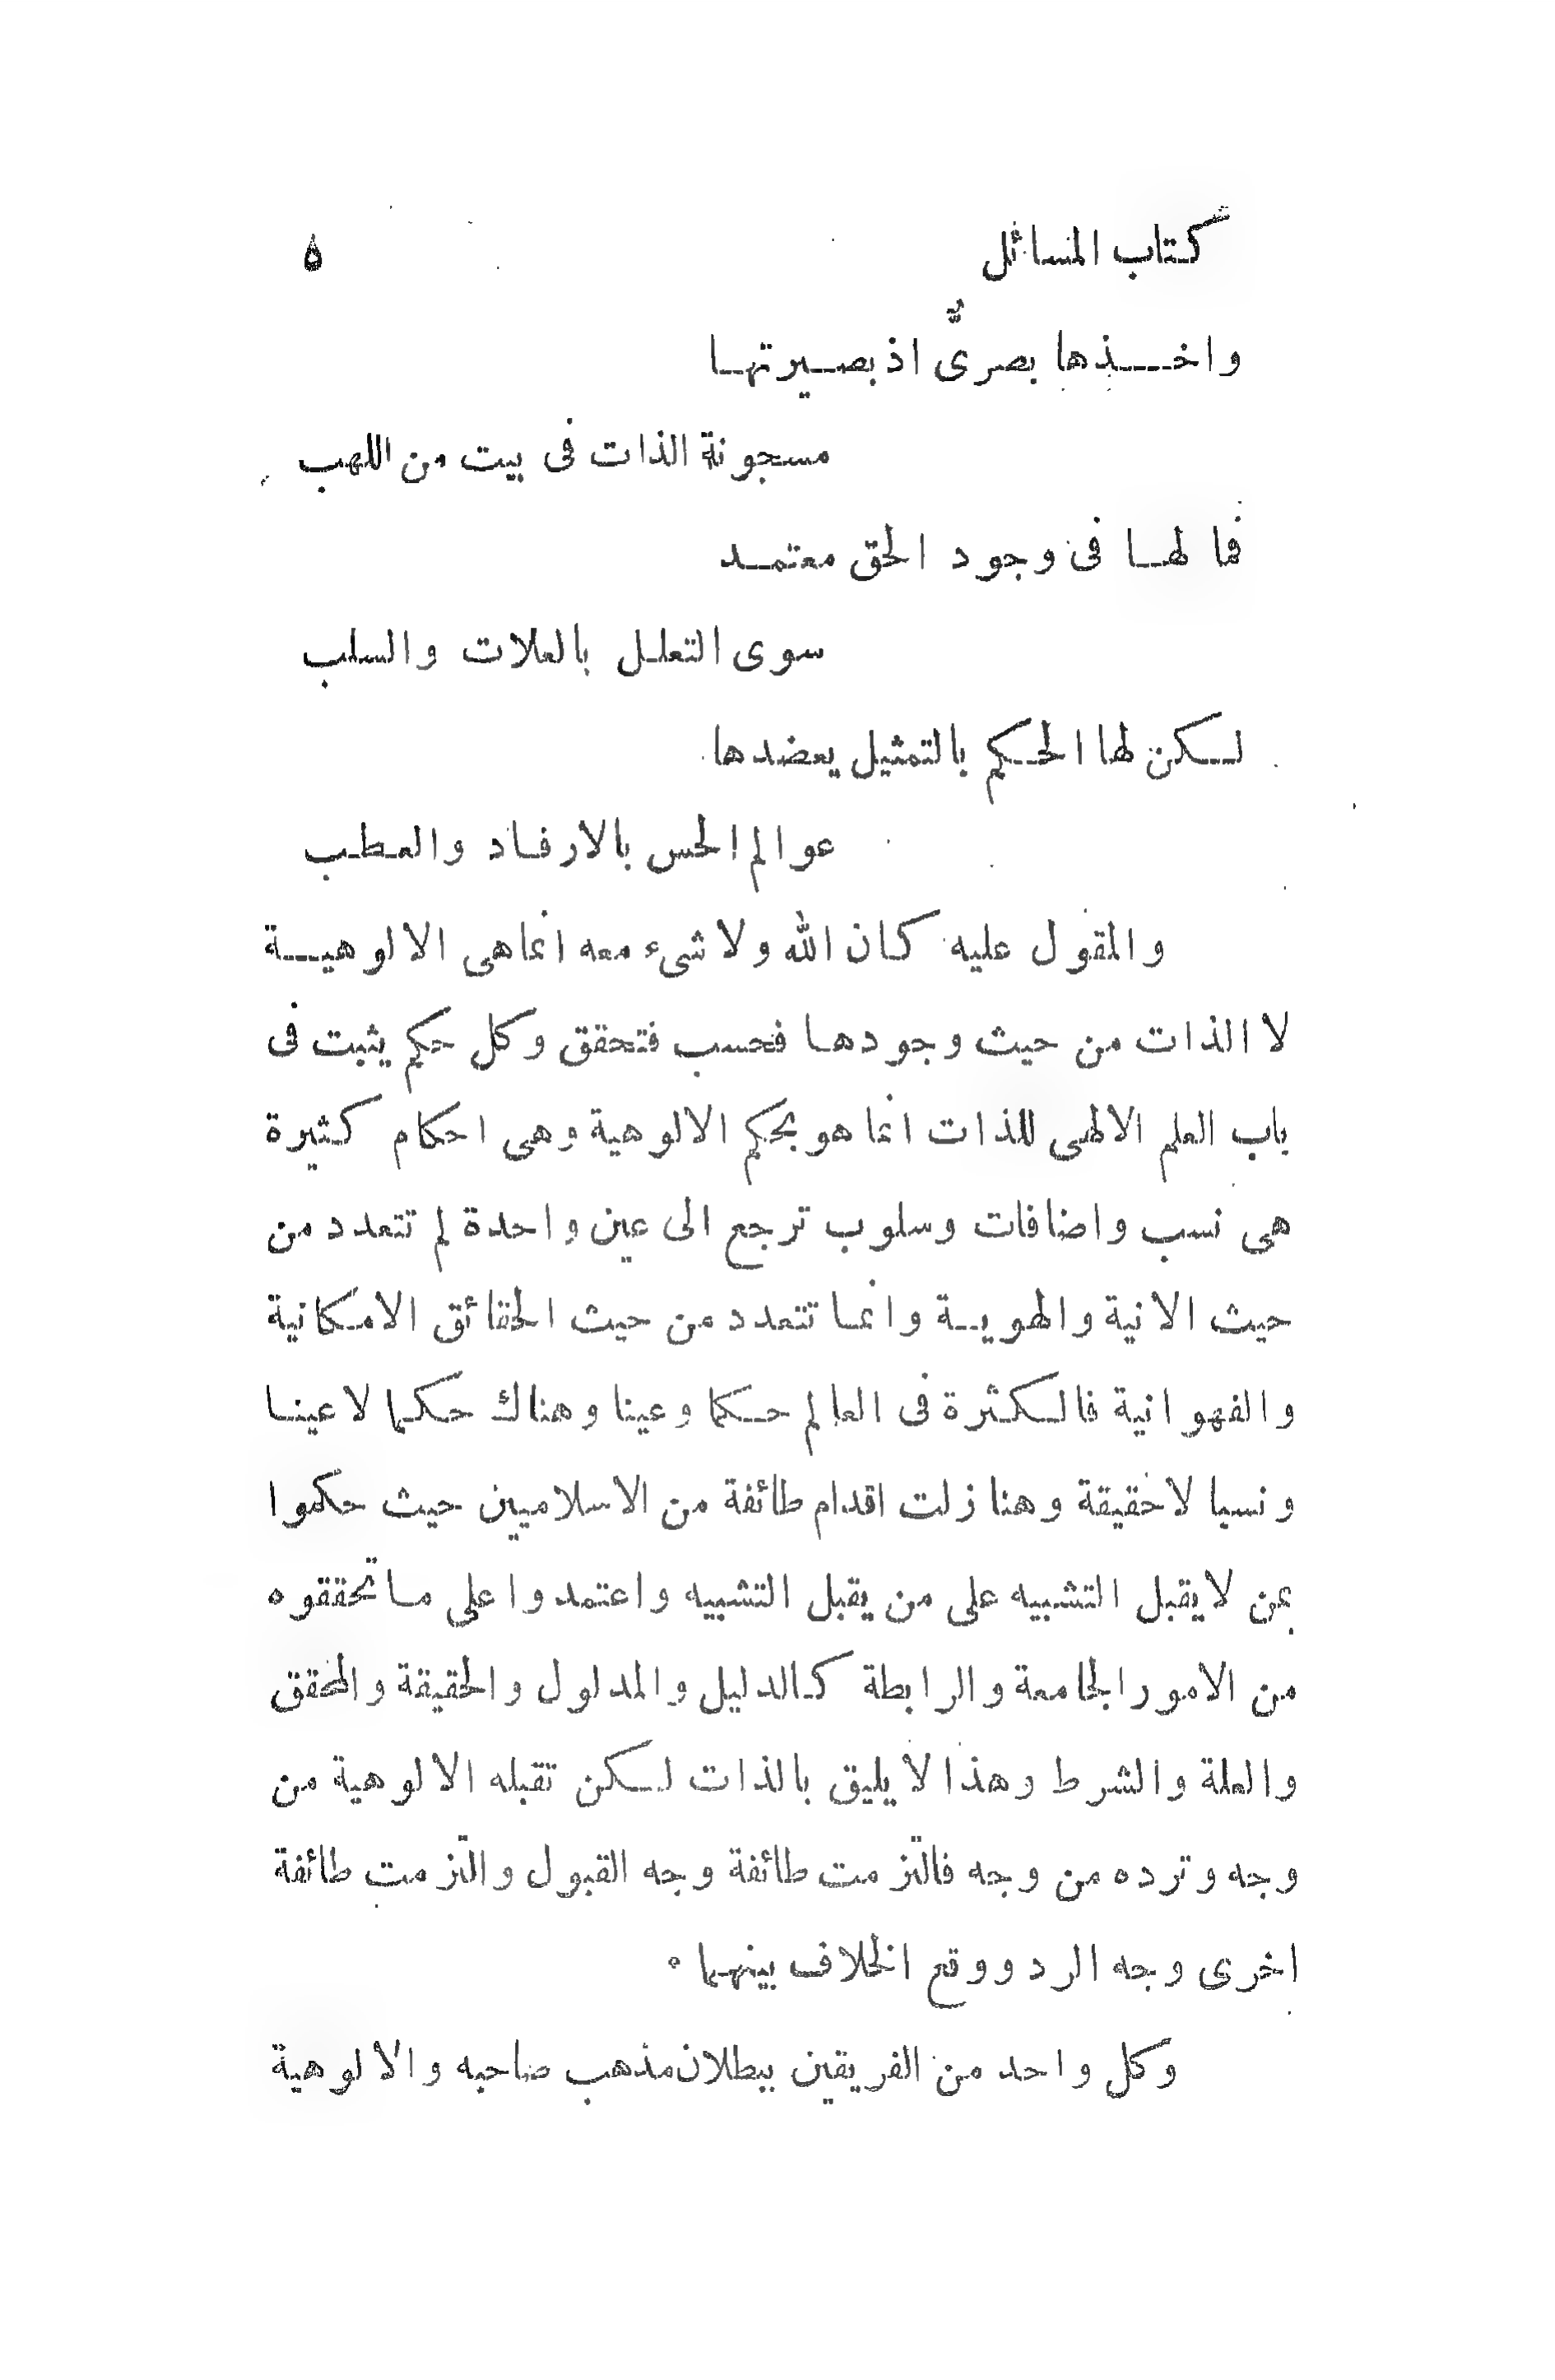 كتاب المسائل ٥
واخذها بصرىٌّ اذ بصيرتها
مسجونة الذات فى بيت من اللهب
فما لها فى وجود الحق معتمد
سوى التعلل بالعلات والسلب
لكن لها الحكم بالتمثيل يعضدها
عوالم الحس بالارفاد والعطب
والمقول عليه كان الله ولا شىء معه انما هى الالوهية
لا الذات من حيث وجودها فحسب فتحقق وكل حكم يثبت فى
باب العلم الالهى للذات انما هو بحكم الالوهية وهى احكام كثيرة
هى نسب واضافات وسلوب ترجع الى عين واحدة لم تتعدد من
حيث الانية والهوية وانما تتعدد من حيث الحقائق الامكانية
والفهوانية فالكثرة فى العالم حكما وعينا وهناك حكما لا عينا
ونسبا لا حقيقة وهنا زلت اقدام طائفة من الاسلاميين حيث حكموا
بمن لا يقبل التشبيه على من يقبل التشبيه واعتمدوا على ما تحققوه
من الامور الجامعة والرابطة كالدليل والمدلول والحقيقة والمحقق
والعلة والشرط وهذا لا يليق بالذات لكن تقبله الالوهية من
وجه وترده من وجه فالتزمت طائفة وجه القبول والتزمت طائفة
اخرى وجه الرد ووقع الخلاف بينهما ٠
وكل واحد من الفريقين ببطلان مذهب صاحبه والالوهية